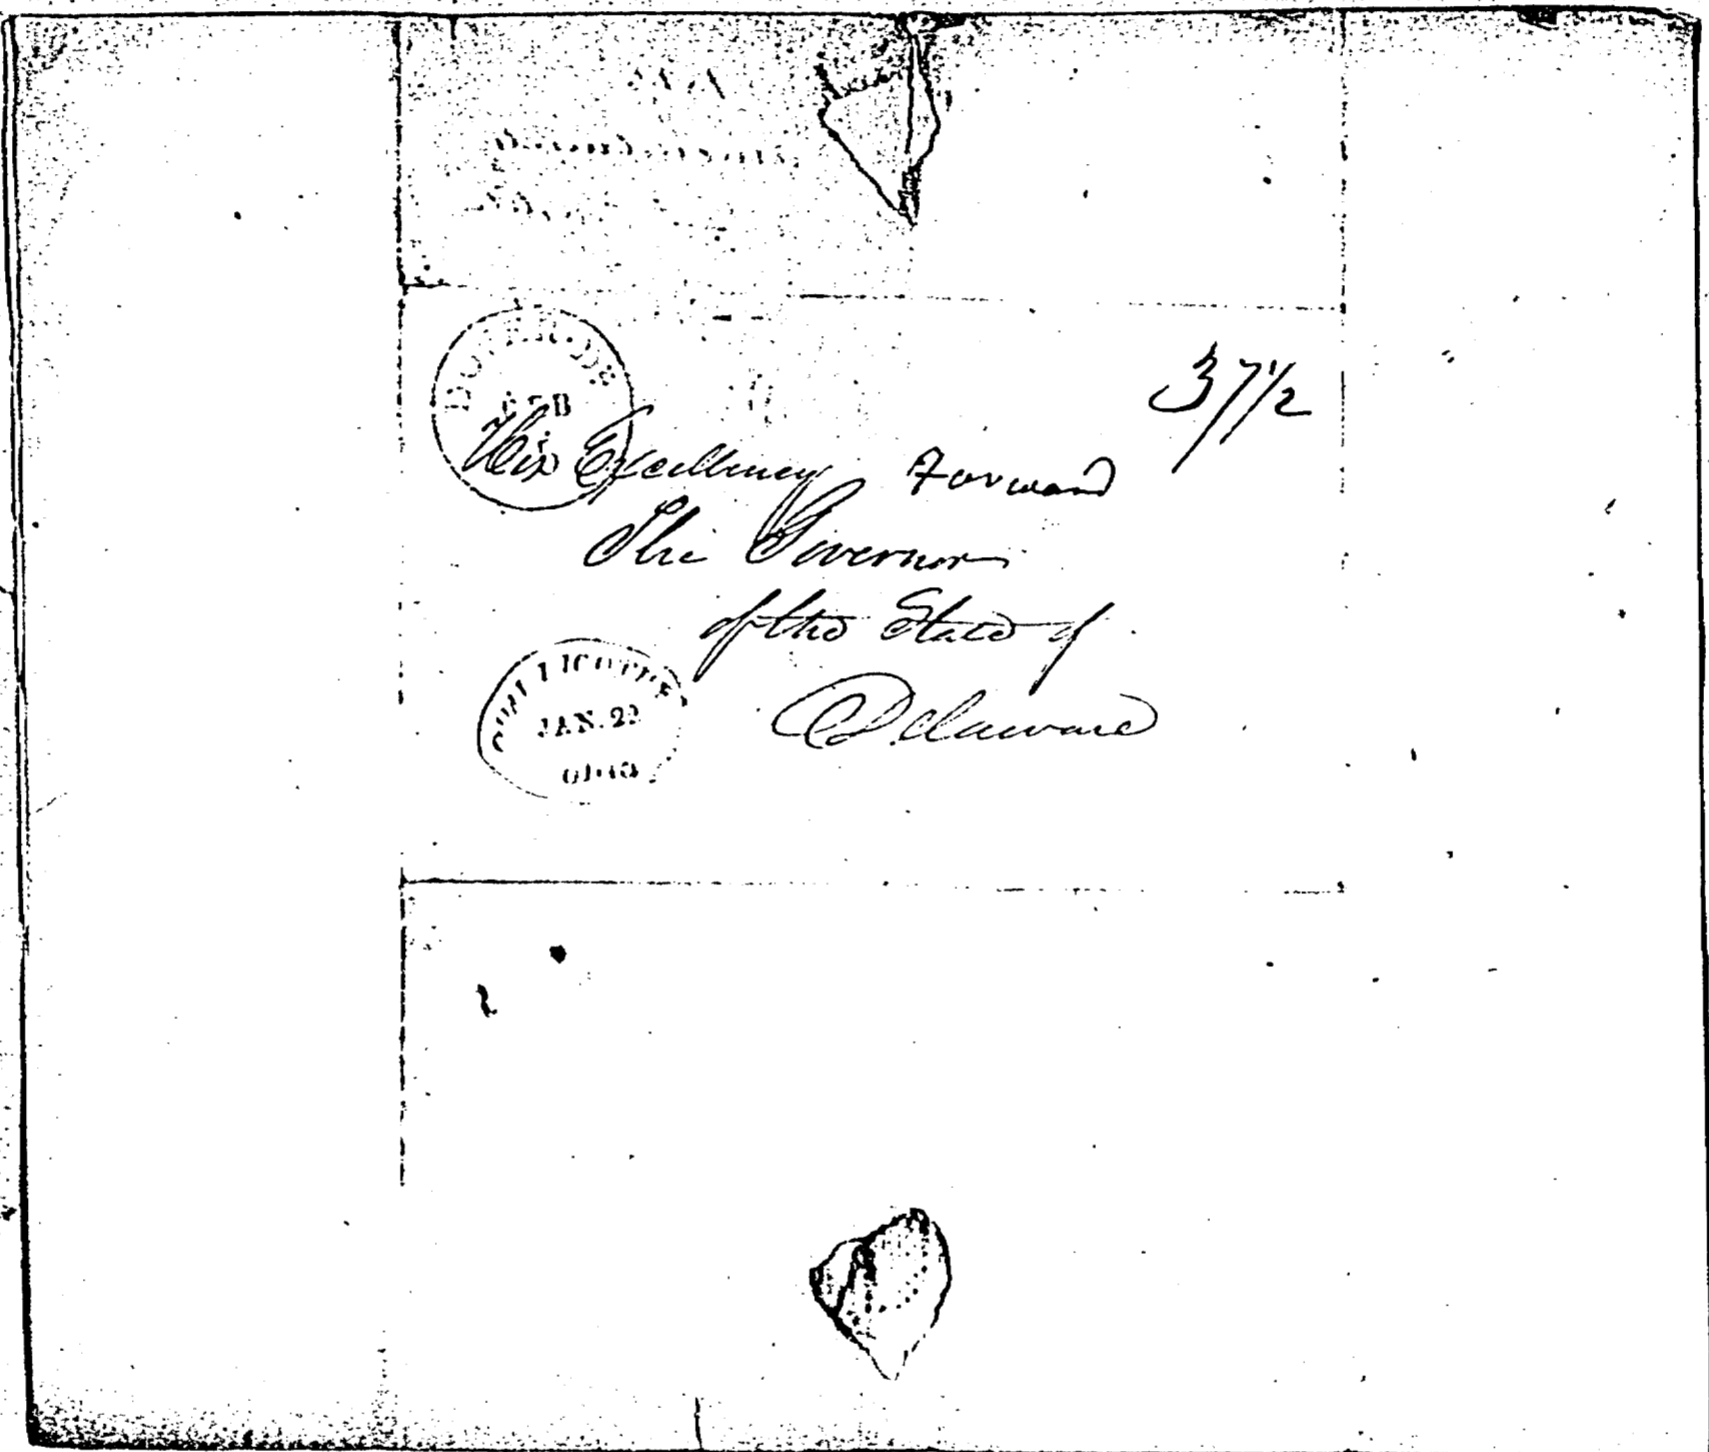 DOVER. DE
FEB
37 1/2
His Excellency Forward
The Governor
of the State of
Delaware
CHILLICOTHE
JAN. 22
OHIO